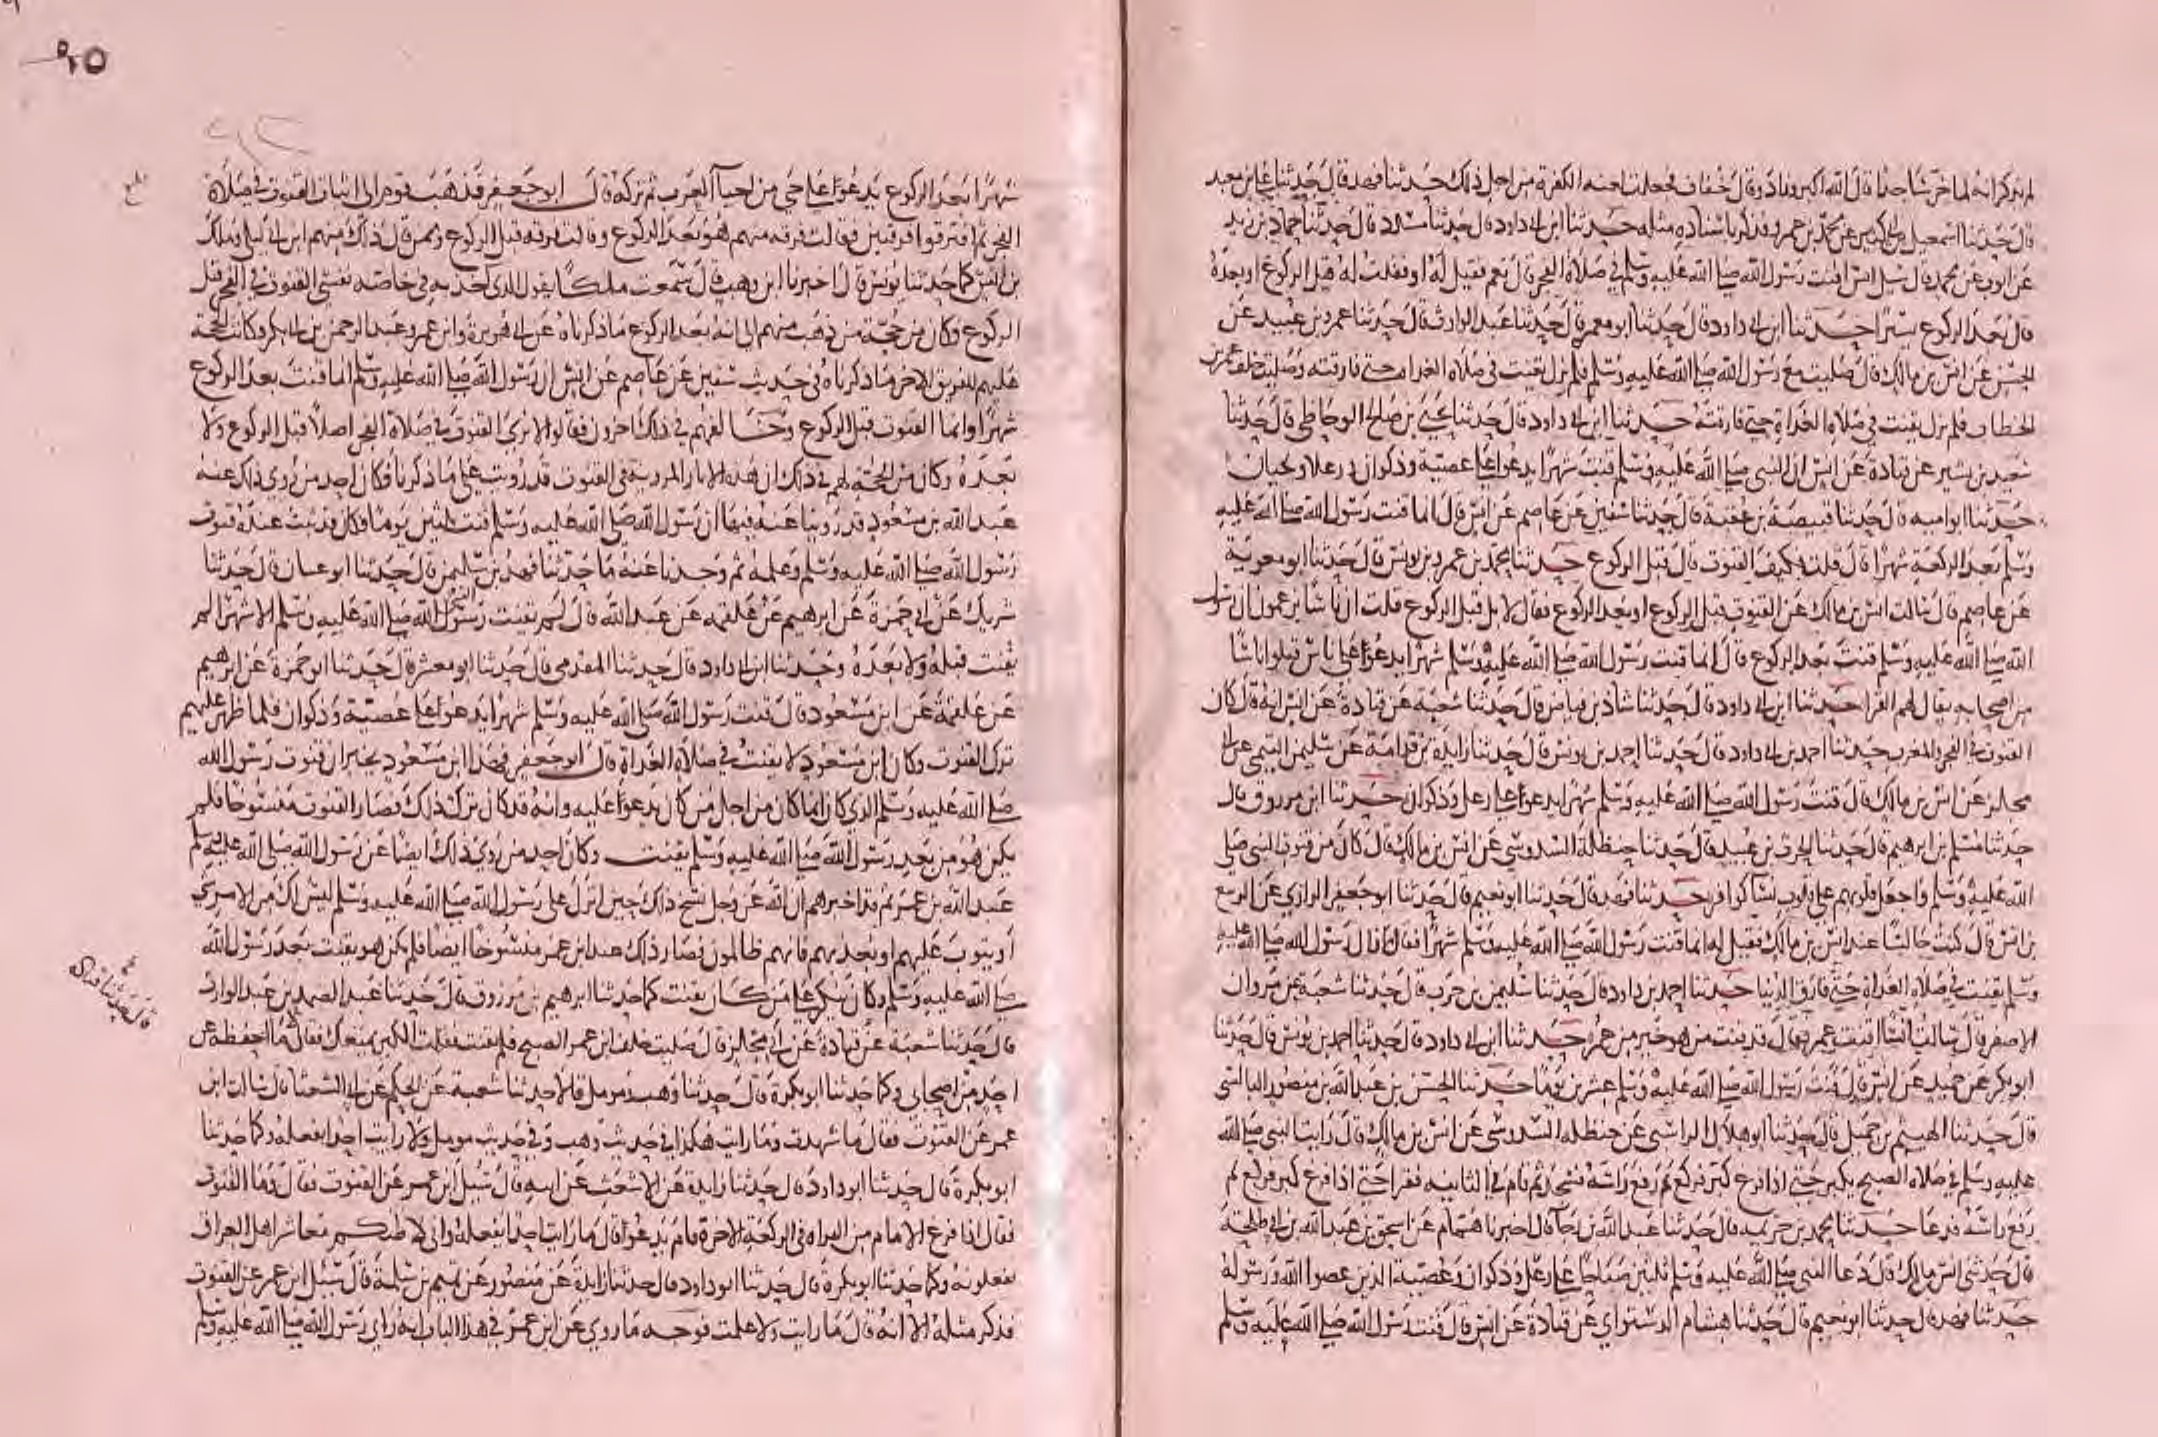 لم يذكر انه لما خر ساجدا قال الله اكبر وزاد وقال خفاف فجعلت لعنة الكفرة من اجل ذلك حدثنا فهد قال حدثنا علي بن معبد
قال حدثنا اسمعيل بن ابي كثير عن محمد بن عمرو فذكر باسناده مثله حدثنا ابن ابي داود قال حدثنا مسدد قال حدثنا حماد بن زيد
عن ايوب عن محمد قال سئل انس اقنت رسول الله صلى الله عليه وسلم في صلاة الفجر قال نعم فقيل له او فقلت له قبل الركوع او بعده
قال بعد الركوع يسيرا حدثنا ابن ابي داود قال حدثنا ابو معمر قال حدثنا عبد الوارث قال حدثنا عمرو بن عبيد عن
الحسن عن انس بن مالك قال صليت مع رسول الله صلى الله عليه وسلم فلم يزل يقنت في صلاة الغداة حتى فارقته وصليت خلف عمر بن
الخطاب فلم يزل يقنت في صلاة الغداة حتى فارقته حدثنا ابن ابي داود قال حدثنا يحيى بن صالح الوحاظي قال حدثنا
سعيد بن بشير عن قتادة عن انس ان النبي صلى الله عليه وسلم قنت شهرا يدعو على عصية وذكوان ورعل ولحيان
حدثنا ابو امية قال حدثنا قبيصة بن عقبة قال حدثنا سفين عن عاصم عن انس قال انما قنت رسول الله صلى الله عليه
وسلم بعد الركعة شهرا قال قلت فكيف القنوت قال قبل الركوع حدثنا محمد بن عمرو بن يونس قال حدثنا ابو معوية
عن عاصم قال سالت انس بن مالك عن القنوت قبل الركوع او بعد الركوع فقال لا بل قبل الركوع قلت ان ناسا يزعمون ان رسول
الله صلى الله عليه وسلم قنت بعد الركوع قال انما قنت رسول الله صلى الله عليه وسلم شهرا يدعو على ناس قتلوا اناسا
من اصحابه يقال لهم القرا حدثنا ابن ابي داود قال حدثنا شاذ بن فياض قال حدثنا شعبة عن قتادة عن انس انه قال كان
القنوت في الفجر والمغرب حدثنا احمد بن ابي داود قال حدثنا احمد بن يونس قال حدثنا زايدة بن قدامة عن سليمن التيمي عن ابي
مجلز عن انس بن مالك قال قنت رسول الله صلى الله عليه وسلم شهرا يدعو على رعل وذكوان حدثنا ابن مرزوق قال
حدثنا مسلم بن ابرهيم قال حدثنا الحرث بن عبيد قال حدثنا حنظلة السدوسي عن انس بن مالك قال كان من قنوت النبي صلى
الله عليه وسلم واجعل قلوبهم على قلوب نسا كوافر حدثنا فهد قال حدثنا ابو نعيم قال حدثنا ابو جعفر الرازي عن الربيع
بن انس قال كنت جالسا عند انس بن مالك فقيل له انما قنت رسول الله صلى الله عليه وسلم شهرا فقال ما زال رسول الله صلى الله عليه
وسلم يقنت في صلاة الغداة حتى فارق الدنيا حدثنا احمد بن داود قال حدثنا سليمن بن حرب قال حدثنا شعبة عن مروان
الاصفر قال سالت انسا اقنت عمر فقال قد قنت من هو خير من عمر حدثنا ابن ابي داود قال حدثنا احمد بن يونس قال حدثنا
ابو بكر عن حميد عن انس قال قنت رسول الله صلى الله عليه وسلم عشرين يوما حدثنا الحسن بن عبد الله بن منصور البالسي
قال حدثنا الهيثم بن جميل قال حدثنا ابو هلال الراسبي عن حنظلة السدوسي عن انس بن مالك قال رايت النبي صلى الله
عليه وسلم في صلاة الصبح يكبر حتى اذا فرغ كبر فركع ثم رفع راسه فسجد ثم قام في الثانية فقرا حتى اذا فرغ كبر فركع ثم
رفع راسه فدعا حدثنا محمد بن خزيمة قال حدثنا عبد الله بن رجا قال اخبرنا همام عن اسحق بن عبد الله بن ابي طلحة
قال حدثني انس بن مالك قال دعا النبي صلى الله عليه وسلم ثلثين صباحا على رعل وذكوان وعصية الذين عصوا الله ورسوله
حدثنا فهد قال حدثنا ابو نعيم قال حدثنا هشام الدستواي عن قتادة عن انس قال قنت رسول الله صلى الله عليه وسلم
شهرا بعد الركوع يدعو على حي من احيا العرب ثم تركه قال ابو جعفر فذهب قوم الى اثبات القنوت في صلاة
الفجر ثم افترقوا فرقتين فقالت فرقة منهم هو بعد الركوع وقالت فرقة قبل الركوع وممن قال ذلك منهم ابن ابي ليلى ومالك
بن انس كما حدثنا يونس قال اخبرنا ابن وهب قال سمعت ملكا يقول الذي اخذ به في خاصة نفسي القنوت في الفجر قبل
الركوع وكان من حجة من ذهب منهم الى انه بعد الركوع ما ذكرناه عن ابي هريرة وابن عمر وعبد الرحمن بن ابي بكر وكانت الحجة
عليهم للفريق الاخر ما ذكرناه في حديث سفين عن عاصم عن انس ان رسول الله صلى الله عليه وسلم انما قنت بعد الركوع
شهرا وانما القنوت قبل الركوع وخالفهم في ذلك اخرون فقالوا لا نرى القنوت في صلاة الفجر اصلا قبل الركوع ولا
بعده وكان من الحجة لهم في ذلك ان هذه الاثار المروية في القنوت قد رويت على ما ذكرنا فكان احد من روي ذلك عنه
عبد الله بن مسعود قد روينا عنه فيها ان رسول الله صلى الله عليه وسلم قنت ثلثين يوما فكان قد ثبت عنده قنوت
رسول الله صلى الله عليه وسلم وعلمه ثم وجدنا عنه ما حدثنا فهد بن سليمن قال حدثنا ابو غسان قال حدثنا
شريك عن ابي حمزة عن ابرهيم عن علقمة عن عبد الله قال لم يقنت رسول الله صلى الله عليه وسلم الا شهرا لم
يقنت قبله ولا بعده وحدثنا ابن ابي داود قال حدثنا المقدمي قال حدثنا ابو معشر قال حدثنا ابو حمزة عن ابرهيم
عن علقمة عن ابن مسعود قال قنت رسول الله صلى الله عليه وسلم شهرا يدعو على عصية وذكوان فلما ظهر عليهم
ترك القنوت وكان ابن مسعود لا يقنت في صلاة الغداة قال ابو جعفر فهذا ابن مسعود يخبر ان قنوت رسول الله
صلى الله عليه وسلم الذي كان انما كان من اجل من كان يدعو عليه وانه قد كان ترك ذلك فصار القنوت منسوخا فلم
يكن هو من بعد رسول الله صلى الله عليه وسلم يقنت وكان احد من روي ذلك ايضا عن رسول الله صلى الله عليه وسلم
عبد الله بن عمر ثم قد اخبرهم ان الله عز وجل نسخ ذلك حين انزل على رسول الله صلى الله عليه وسلم ليس لك من الامر شي
او يتوب عليهم او يعذبهم فانهم ظالمون فصار ذلك عند ابن عمر منسوخا ايضا فلم يكن هو يقنت بعد رسول الله
صلى الله عليه وسلم وكان ينكر على من كان يقنت كما حدثنا ابرهيم بن مرزوق قال حدثنا عبد الصمد بن عبد الوارث
قال حدثنا شعبة عن قتادة عن ابي مجلز قال صليت خلف ابن عمر الصبح فلم يقنت فقلت الكبر يمنعك فقال ما احفظه عن
احد من اصحابي وكما حدثنا ابو بكرة قال حدثنا وهب ومومل قالا حدثنا شعبة عن الحكم عن ابي الشعثا قال سالت ابن
عمر عن القنوت فقال ما شهدت وما رايت هكذا في حديث وهب وفي حديث مومل ولا رايت احدا يفعله وكما حدثنا
ابو بكرة قال حدثنا ابو داود قال حدثنا زايدة عن الاشعث عن ابيه قال سئل ابن عمر عن القنوت فقال وما القنوت
فقال اذا فرغ الامام من القراة في الركعة الاخرة قام يدعو قال ما رايت احدا يفعله واني لاظنكم معاشر اهل العراق
تفعلونه وكما حدثنا ابو بكرة قال حدثنا ابو داود قال حدثنا زايدة عن منصور عن تميم بن سلمة قال سئل ابن عمر عن القنوت
فذكر مثله الا انه قال ما رايت ولا علمت فوجه ما روي عن ابن عمر في هذا الباب انه راى رسول الله صلى الله عليه وسلم